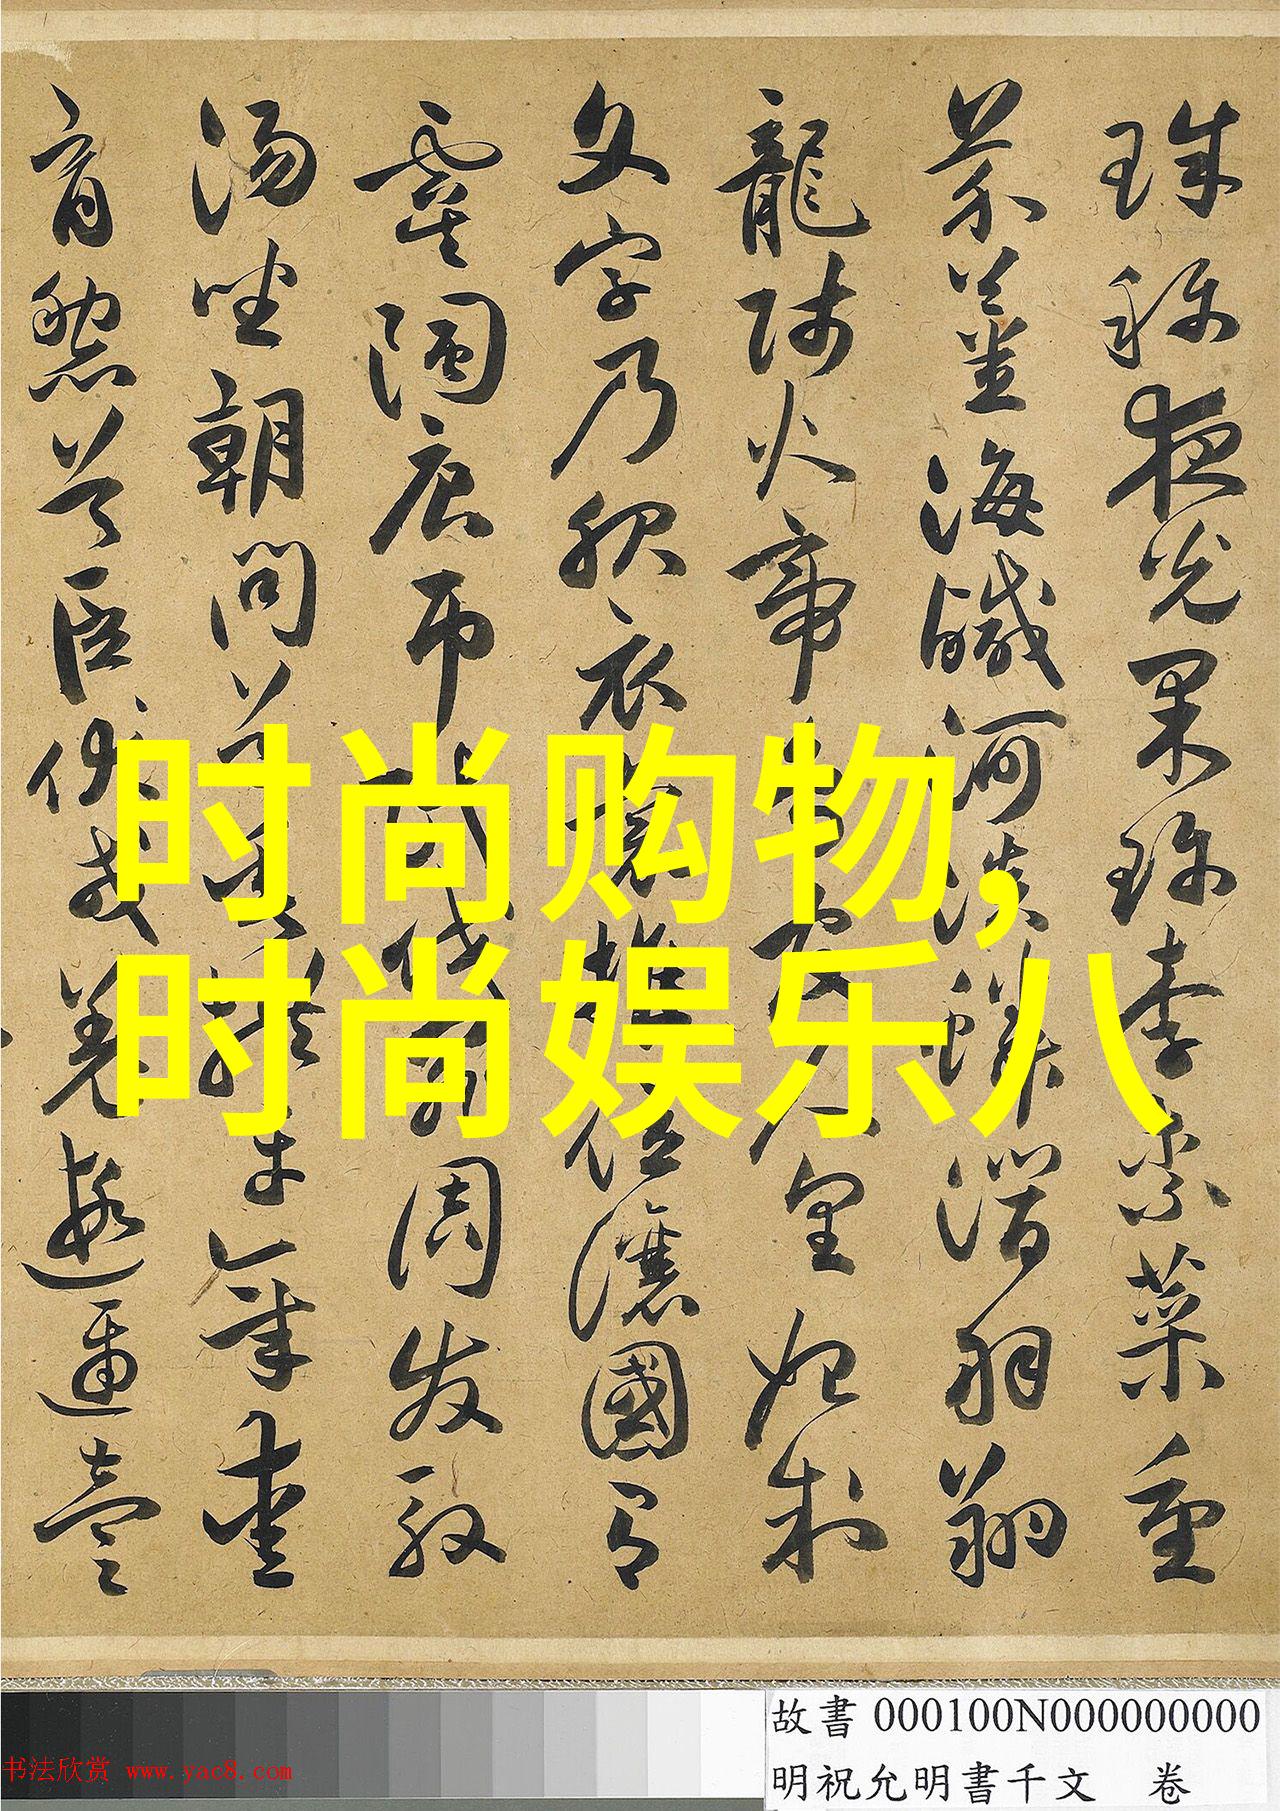 珠稱夜光果珍李柰菜重
芥薑海鹹河淡鱗潛羽翔
龍師火帝鳥官人皇始制
文字乃服衣裳推位讓國有
虞陶唐弔民伐罪周發殷
湯坐朝問道垂拱平章愛
育黎首臣伏戎羌遐邇壹
时尚购物,
时尚娱乐八
故書 000100N000000000
明祝允明書千文 卷
书法欣赏 www.yac8.com